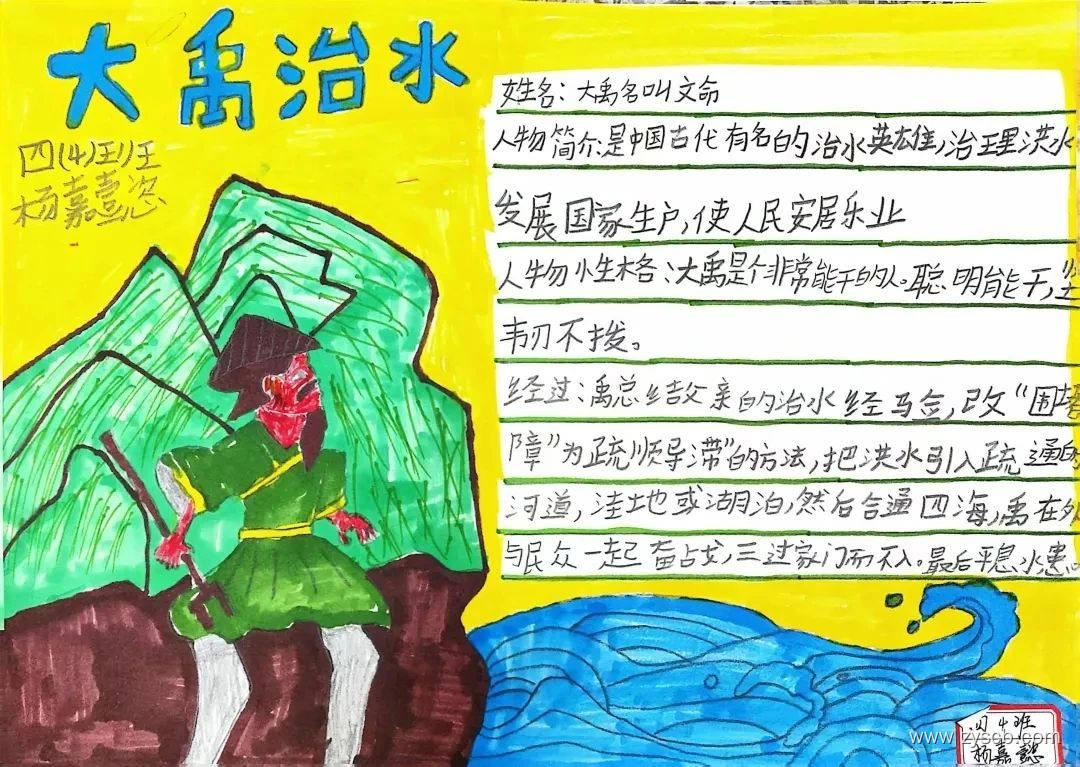 大禹治水
四(4)班
杨嘉懿
姓名：大禹名叫文命
人物简介:是中国古代有名的治水英雄,治理洪水
发展国家生户,使人民安居乐业
人物性格：大禹是个非常能干的人。聪明能干,坚
韦刃不拨。
经过：禹总结父亲的治水经马佥,改“围堵
障”为疏顺导滞”的方法,把洪水引入疏通的
河道,洼地或湖泊,然后合通四海,禹在外
与民众一起奋占戈,三过家门而不入。最后平息水患。
四4班
杨嘉懿
www.lzyseb.com